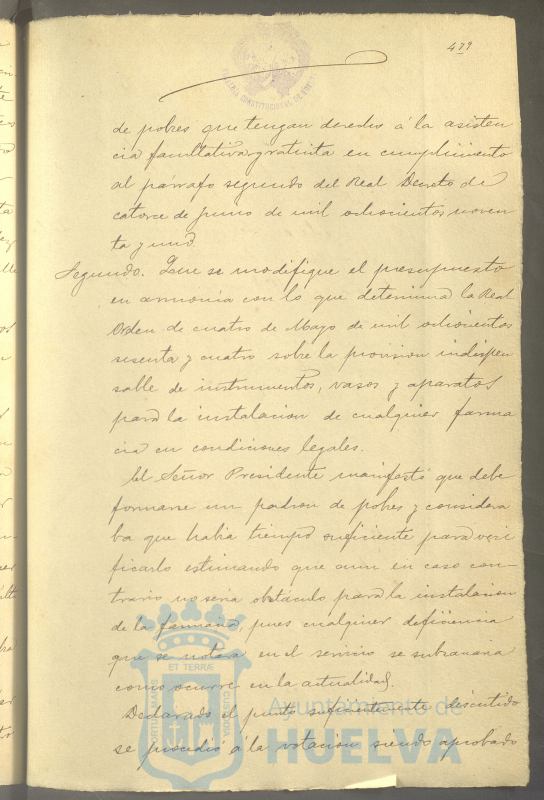 479
de pobres que tengan derecho á la asisten
cia facultativa gratuita en cumplimiento
al párrafo segundo del Real Decreto de
catorce de junio de mil ochocientos noven
ta y uno.
Segundo. Que se modifique el presupuesto
en armonia con lo que determina la Real
Orden de cuatro de Mayo de mil ochocientos
sesenta y cuatro sobre la provision indispen
sable de instrumentos, vasos y aparatos
para la instalacion de cualquier farma
cia en condiciones legales.
El Señor Presidente manifestó que debe
formarse un padron de pobres y considera
ba que habia tiempo suficiente para veri
ficarlo estimando que aun en caso con-
trario no seria obstáculo para la instalacion
de la farmacia, pues cualquier deficiencia
que se notara en el servicio se subsanaria
como ocurre en la actualidad.
Declarado el punto suficientemente discutido
se procedió á la votacion siendo aprobado
ET TERRÆ
PORTUS MARIS
CUSTODIA
Ayuntamiento de
HUELVA